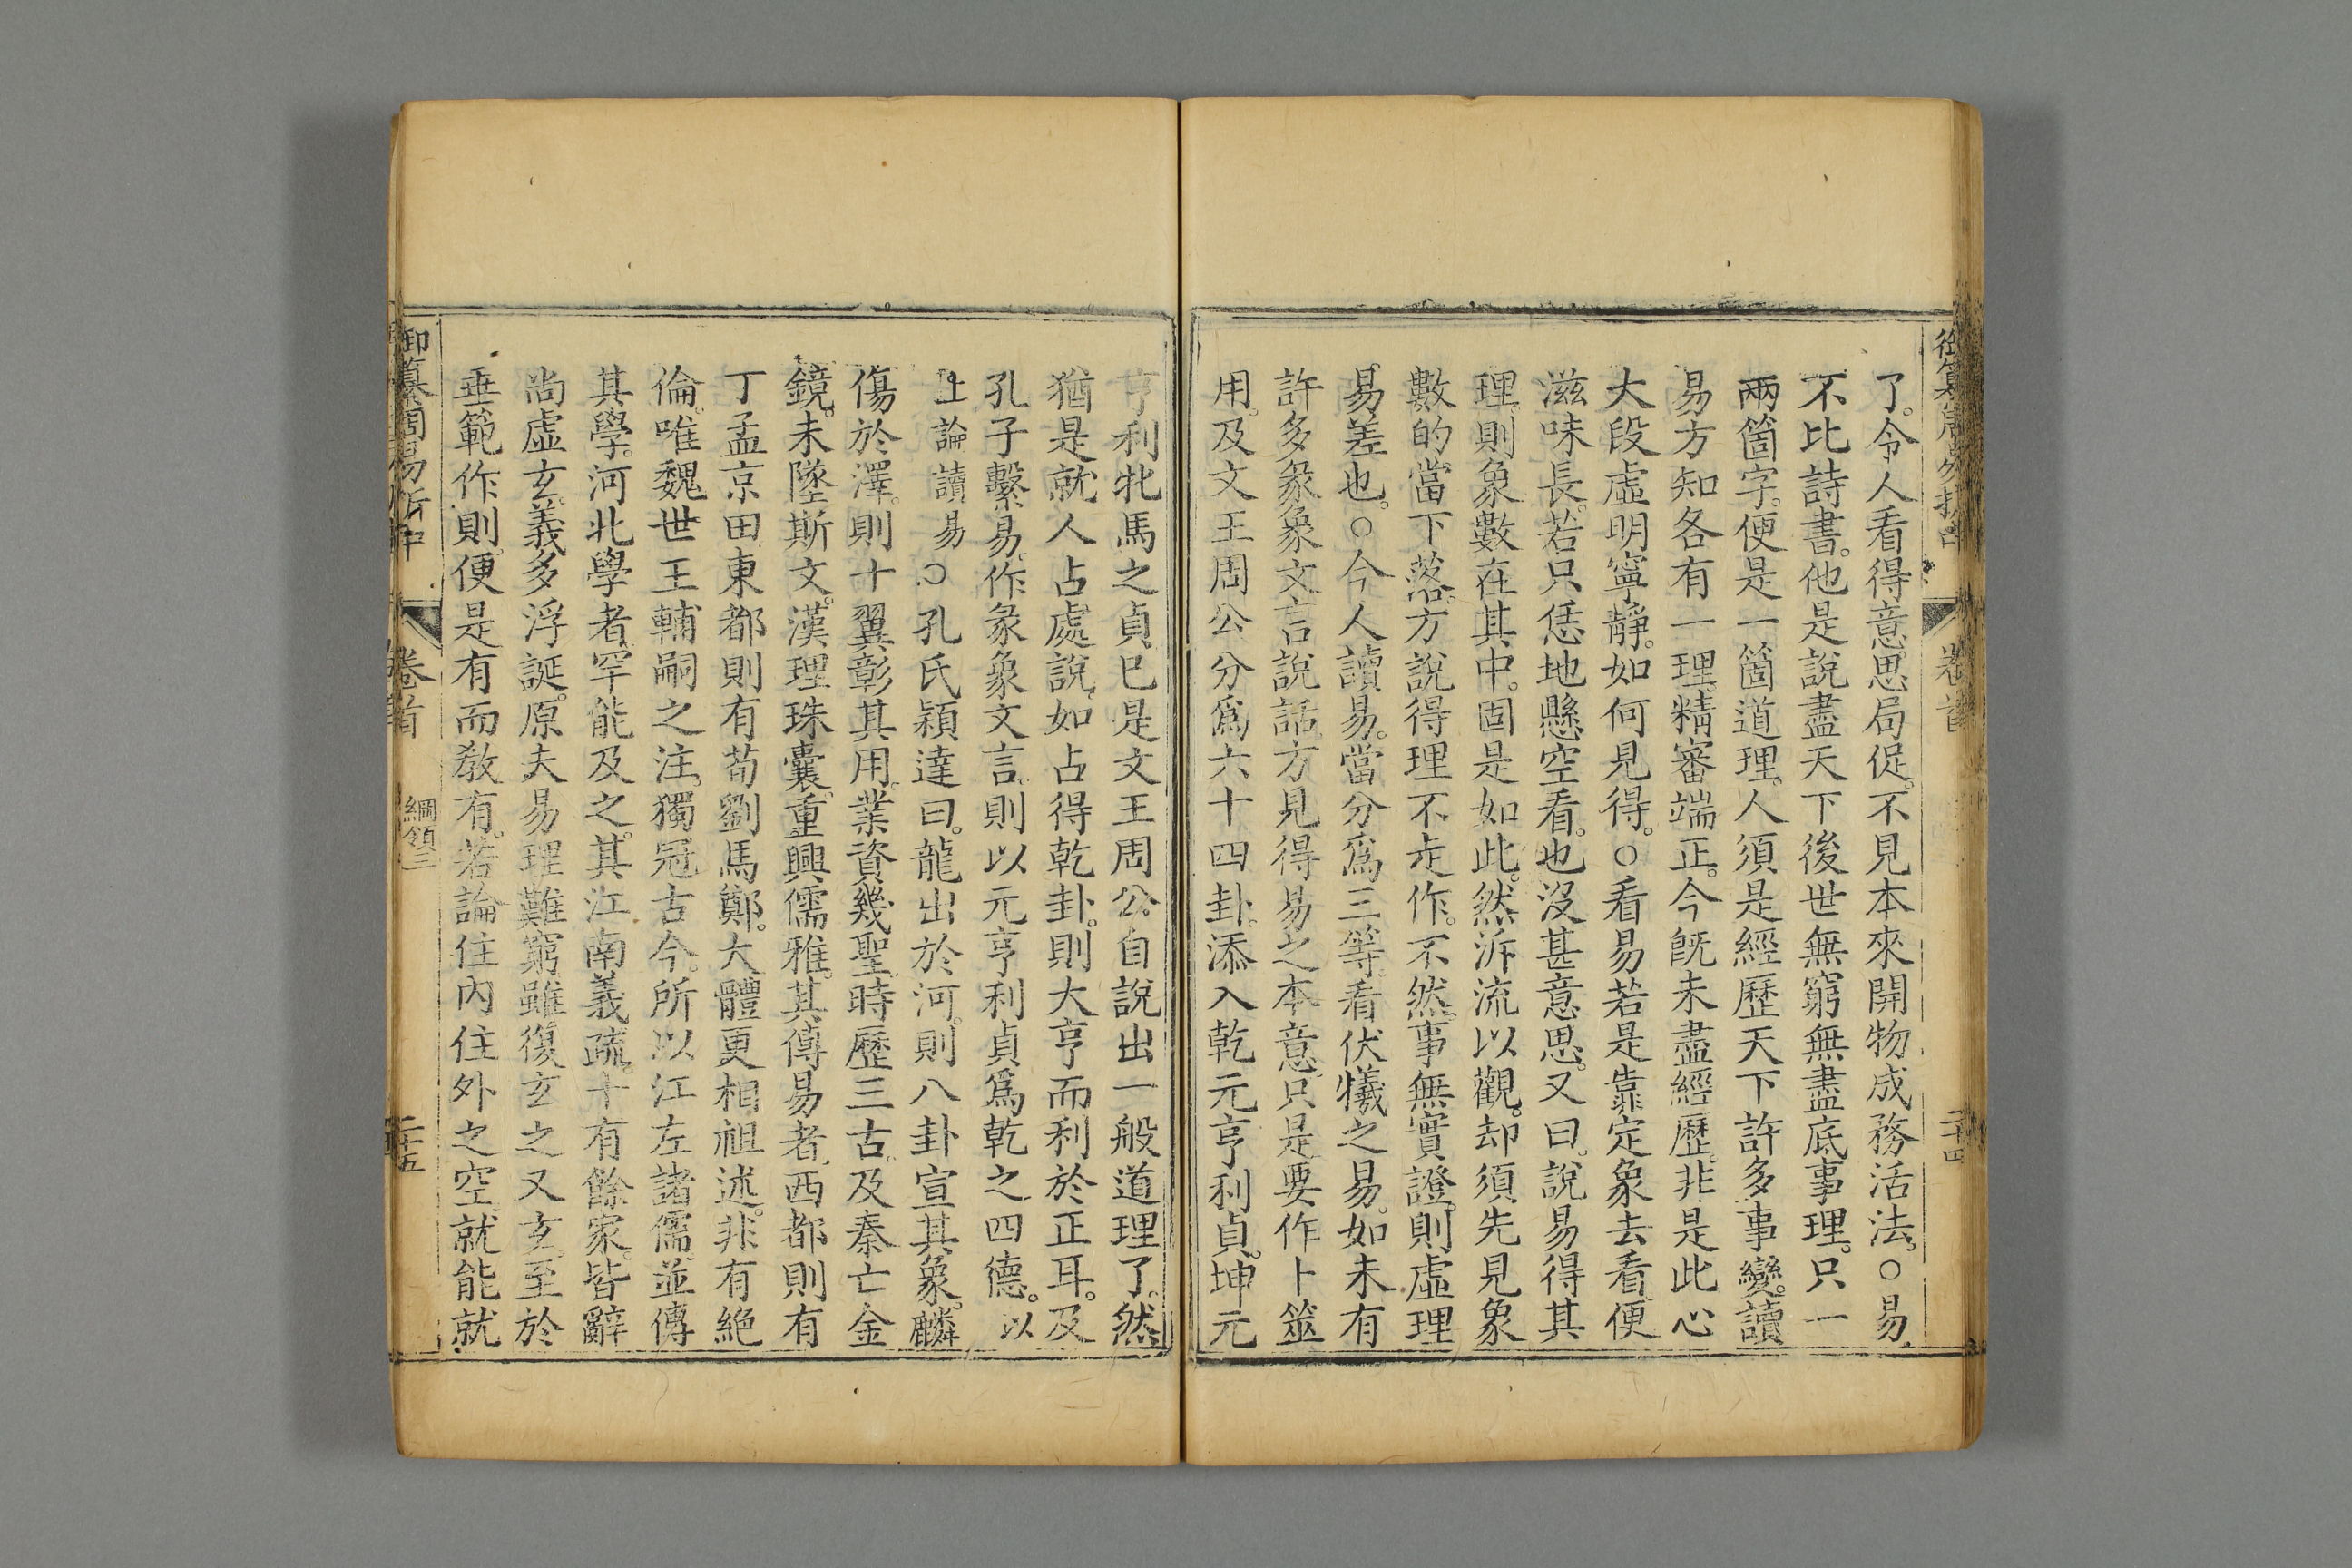 御纂周易折中
卷首
二十四
了。令人看得意思局促。不見本來開物成務活法。○易
不比詩書。他是說盡天下後世無窮無盡底事理。只一
兩箇字。便是一箇道理。人須是經歷天下許多事變。讀
易方知各有一理。精審端正。今旣未盡經歷。非是此心
大段虛明寧靜。如何見得。○看易若是靠定象去看。便
滋味長。若只恁地懸空看。也沒甚意思。又曰。說易得其
理。則象數在其中。固是如此。然泝流以觀。却須先見象
數的當下落。方說得理不走作。不然。事無實證。則虛理
易差也。○今人讀易。當分爲三等。看伏犧之易。如未有
許多彖象文言說話。方見得易之本意。只是要作卜筮
用。及文王周公分爲六十四卦。添入乾元亨利貞。坤元
亨利牝馬之貞。已是文王周公自說出一般道理了。然
猶是就人占處說。如占得乾卦。則大亨而利於正耳。及
孔子繫易。作彖象文言。則以元亨利貞爲乾之四德。以
上論讀易
○孔氏穎達曰。龍出於河。則八卦宣其象。麟
傷於澤。則十翼彰其用。業資幾聖。時歷三古。及秦亡金
鏡。未墜斯文。漢理珠囊。重興儒雅。其傳易者。西都則有
丁孟京田。東都則有荀劉馬鄭。大體更相祖述。非有絕
倫。唯魏世王輔嗣之注。獨冠古今。所以江左諸儒。並傳
其學。河北學者。罕能及之。其江南義疏。十有餘家。皆辭
尚虛玄。義多浮誕。原夫易理難窮。雖復玄之又玄。至於
垂範作則。便是有而敎有。若論住內住外之空。就能就
御纂周易折中
卷首
綱領三
二十五